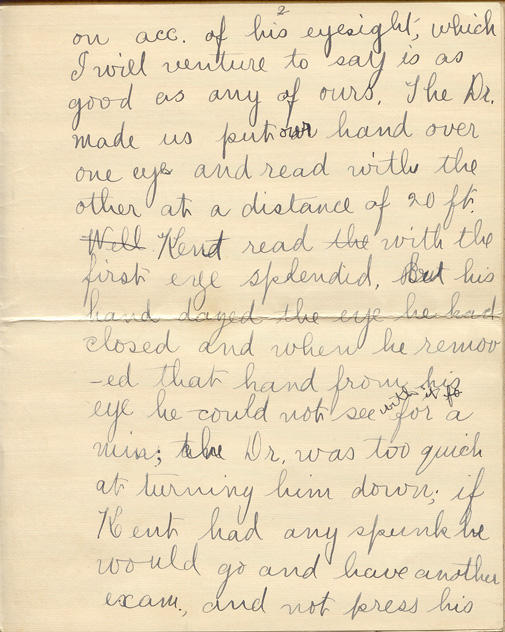 2
on acc. of his eyesight, which
I will venture to say is as
good as any of ours. The Dr.
made us put our hand over
one eye and read with the
other at a distance of 20 ft.
Well Kent read the with the
first eye splendid. But his
hand dazed the eye he had
closed and when he remov
-ed that hand from his
eye he could not see with it for a
min; the Dr. was too quick
at turning him down; if
Kent had any spunk he
would go and have another
exam., and not press his